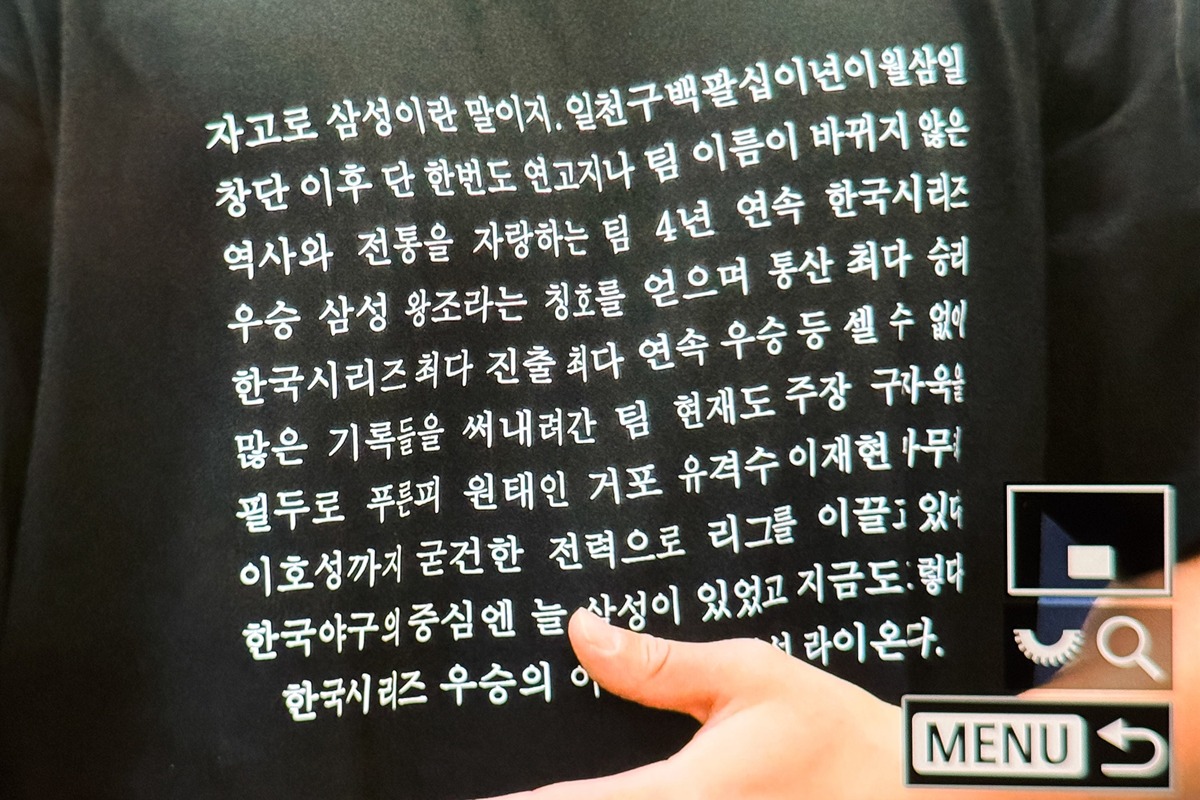 자고로 삼성이란 말이지. 일천구백팔십이년이월삼일
창단 이후 단 한번도 연고지나 팀 이름이 바뀌지 않은
역사와 전통을 자랑하는 팀 4년 연속 한국시리즈
우승 삼성 왕조라는 칭호를 얻으며 통산 최다 승리
한국시리즈 최다 진출 최다 연속 우승 등 셀 수 없이
많은 기록들을 써내려간 팀 현재도 주장 구자욱을
필두로 푸른피 원태인 거포 유격수 이재현
이호성까지 굳건한 전력으로 리그를 이끌고 있다
한국야구의 중심엔 늘 삼성이 있었고 지금도 그렇다
한국시리즈 우승의 라이온다.
MENU